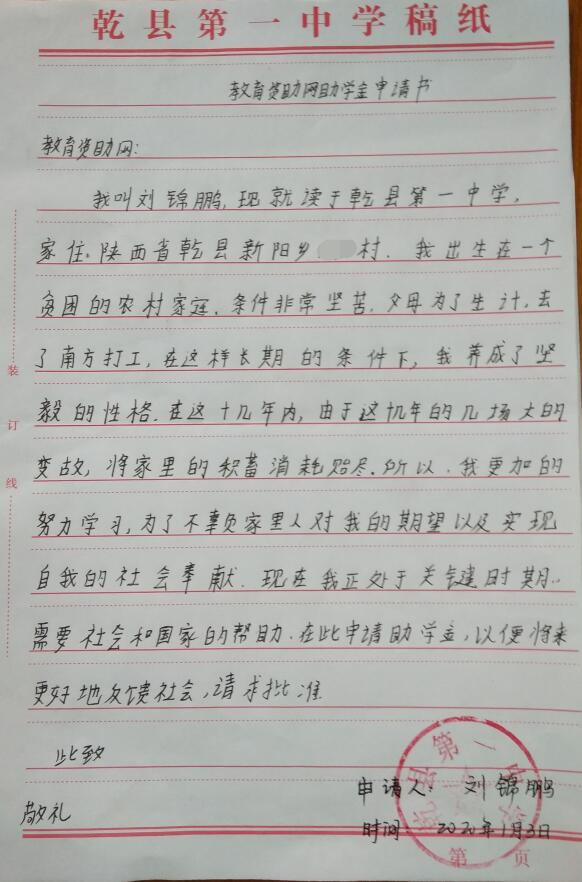 乾县第一中学稿纸
教育资助网助学金申请书
教育资助网:
我叫刘锦鹏,现就读于乾县第一中学,
家住:陕西省乾县新阳乡 村.我出生在一个
贫困的农村家庭.条件非常坚苦.父母为了生计,去
了南方打工,在这样长期的条件下,我养成了坚
毅的性格.在这十几年内,由于这几年的几场大的
变故,将家里的积蓄消耗贻尽.所以.我更加的
努力学习,为了不辜负家里人对我的期望以及实现
自我的社会奉献.现在我正处于关键时期.
需要社会和国家的帮助.在此申请助学金,以便将来
更好地反馈社会,请求批准
此致
申请人:刘锦鹏
敬礼
时间:2020年1月3日
第 页
装订线
乾县第一中学